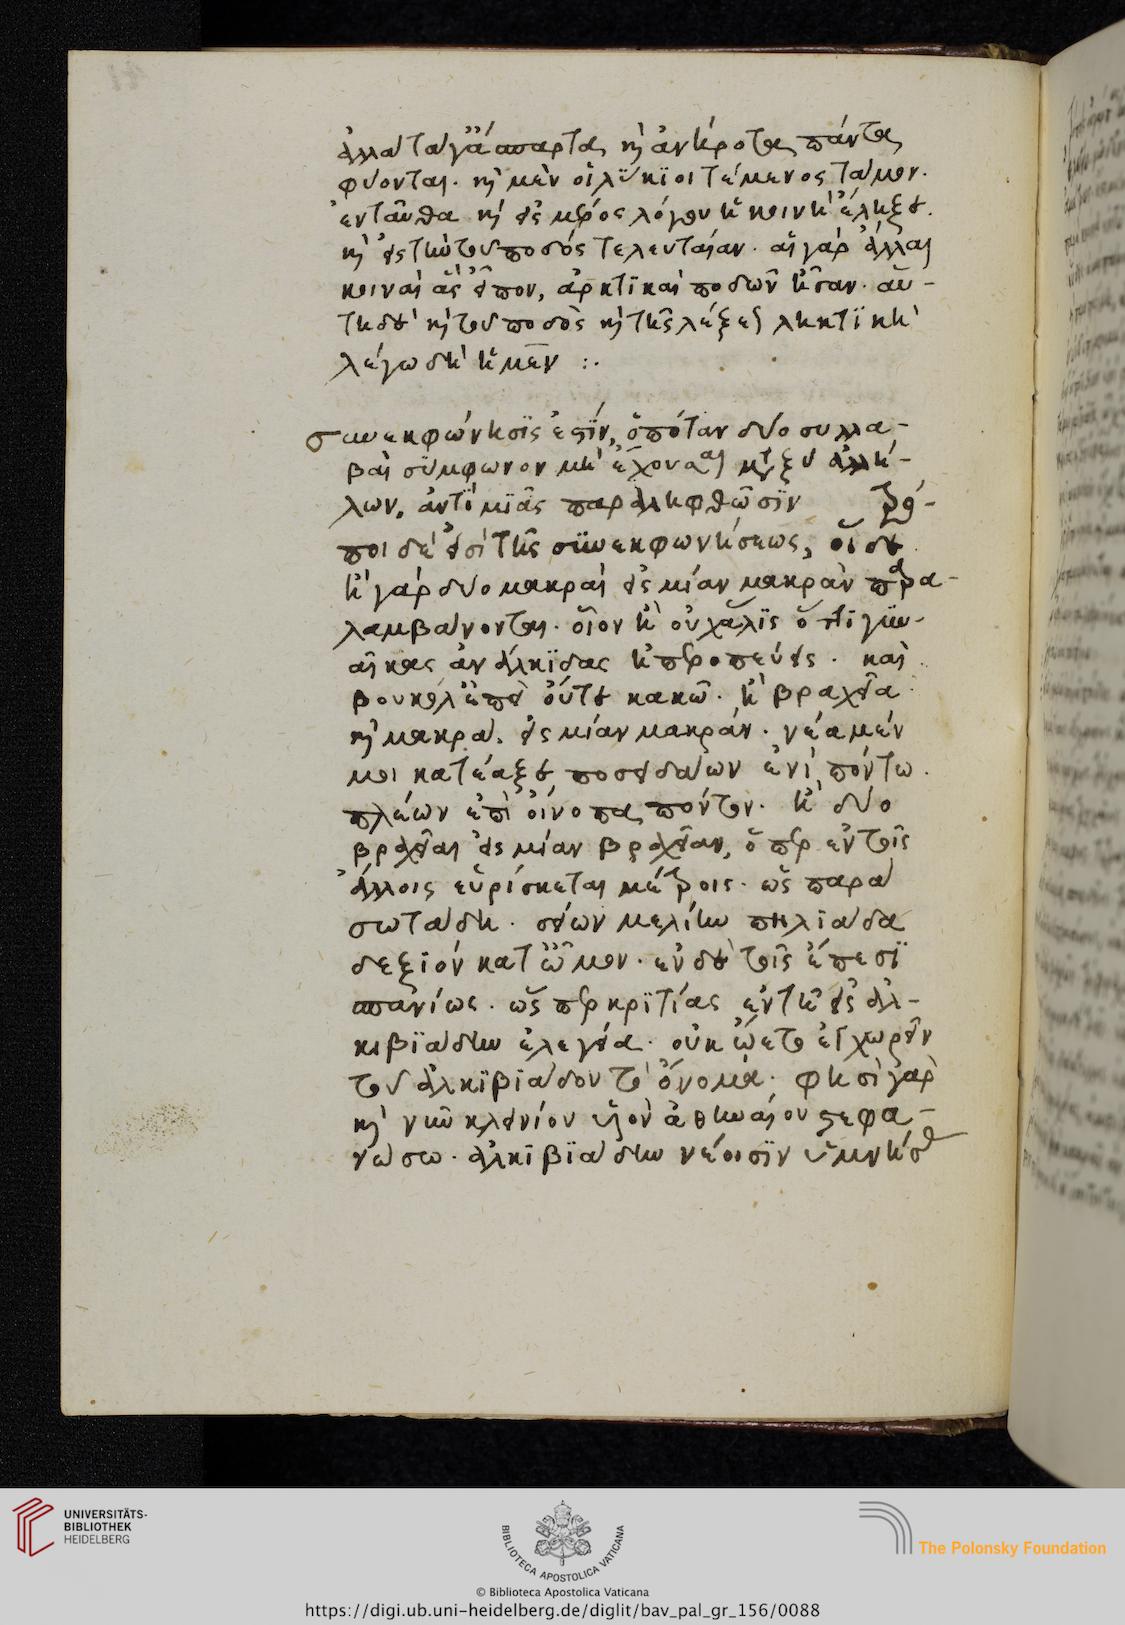 ἀλλὰ τὰ γ᾽ ἄσπαρτα καὶ ἀνήροτα πάντα
φύονται. καὶ μὲν οἱ λύκϊοι τέμενος τάμον.
ἐνταῦθα καὶ εἰς μέρος λόγου ἡ κοινὴ ἔληξε.
καὶ εἰς τὴν τοῦ ποδός τελευταίαν. αἱ γὰρ ἄλλαι
κοιναὶ ἃς εἶπον, ἀρκτϊκαὶ ποδῶν ἦσαν. αὕ-
τη δὲ καὶ τοῦ ποδὸς καὶ τῆς λέξεως ληκτϊκὴ
λέγω δὴ ἡ μὲν :.
συνεκφώνησϊς ἐστϊν, ὁπόταν δύο συλλα-
βαὶ σύμφωνον μὴ ἔχουσαι μεταξὺ ἀλλή-
λων, ἀντὶ μϊᾶς παραληφθῶσϊν τρό-
ποι δέ εἰσὶ τῆς συνεκφωνήσεως, οἵδε.
ἢ γὰρ δύο μακραὶ εἰς μίαν μακρὰν παρα-
λαμβάνονται. οἷον ἢ οὐχ ἅλϊς ὅττϊ γυν-
αῖκας ἀνάλκϊδας ἠπεροπεύεις. καὶ
βουκολέεπεὶ οὔτε κακῶ. ἢ βραχεῖα
καὶ μακρὰ. εἰς μίαν μακράν. νέα μέν
μοι κατέαξε ποσειδάων ἐνὶ πόντω.
πλέων ἐπὶ οἴνοπα πόντον. ἢ δύο
βραχεῖαι εἰς μίαν βραχεῖαν, ὅπερ ἐν τοῖς
ἄλλοις εὑρίσκεται μέτροις. ὡς παρὰ
σωτάδη. σείων μελίην πηλιάδα
δεξϊόν κατ᾽ ὦμον. ἐν δὲ τοῖς ἔπεσϊ
σπανίως. ὡς περ κρϊτίας ἐν τῆ εἰς ἀλ-
κιβϊάδην ἐλεγεία. οὐκ ὤετο ἐγχωρεῖν
τοῦ ἀλκϊβϊάδου τὸ ὄνομα. φησὶ γὰρ
καὶ νῦν κλεινίου υἱὸν ἀθηναίον στεφα-
νώσω. ἀλκϊβϊάδην νέοισϊν ὑμνήσας
UNIVERSITÄTS-
BIBLIOTHEK
HEIDELBERG
BIBLIOTECA APOSTOLICA VATICANA
The Polonsky Foundation
© Biblioteca Apostolica Vaticana
https://digi.ub.uni-heidelberg.de/diglit/bav_pal_gr_156/0088